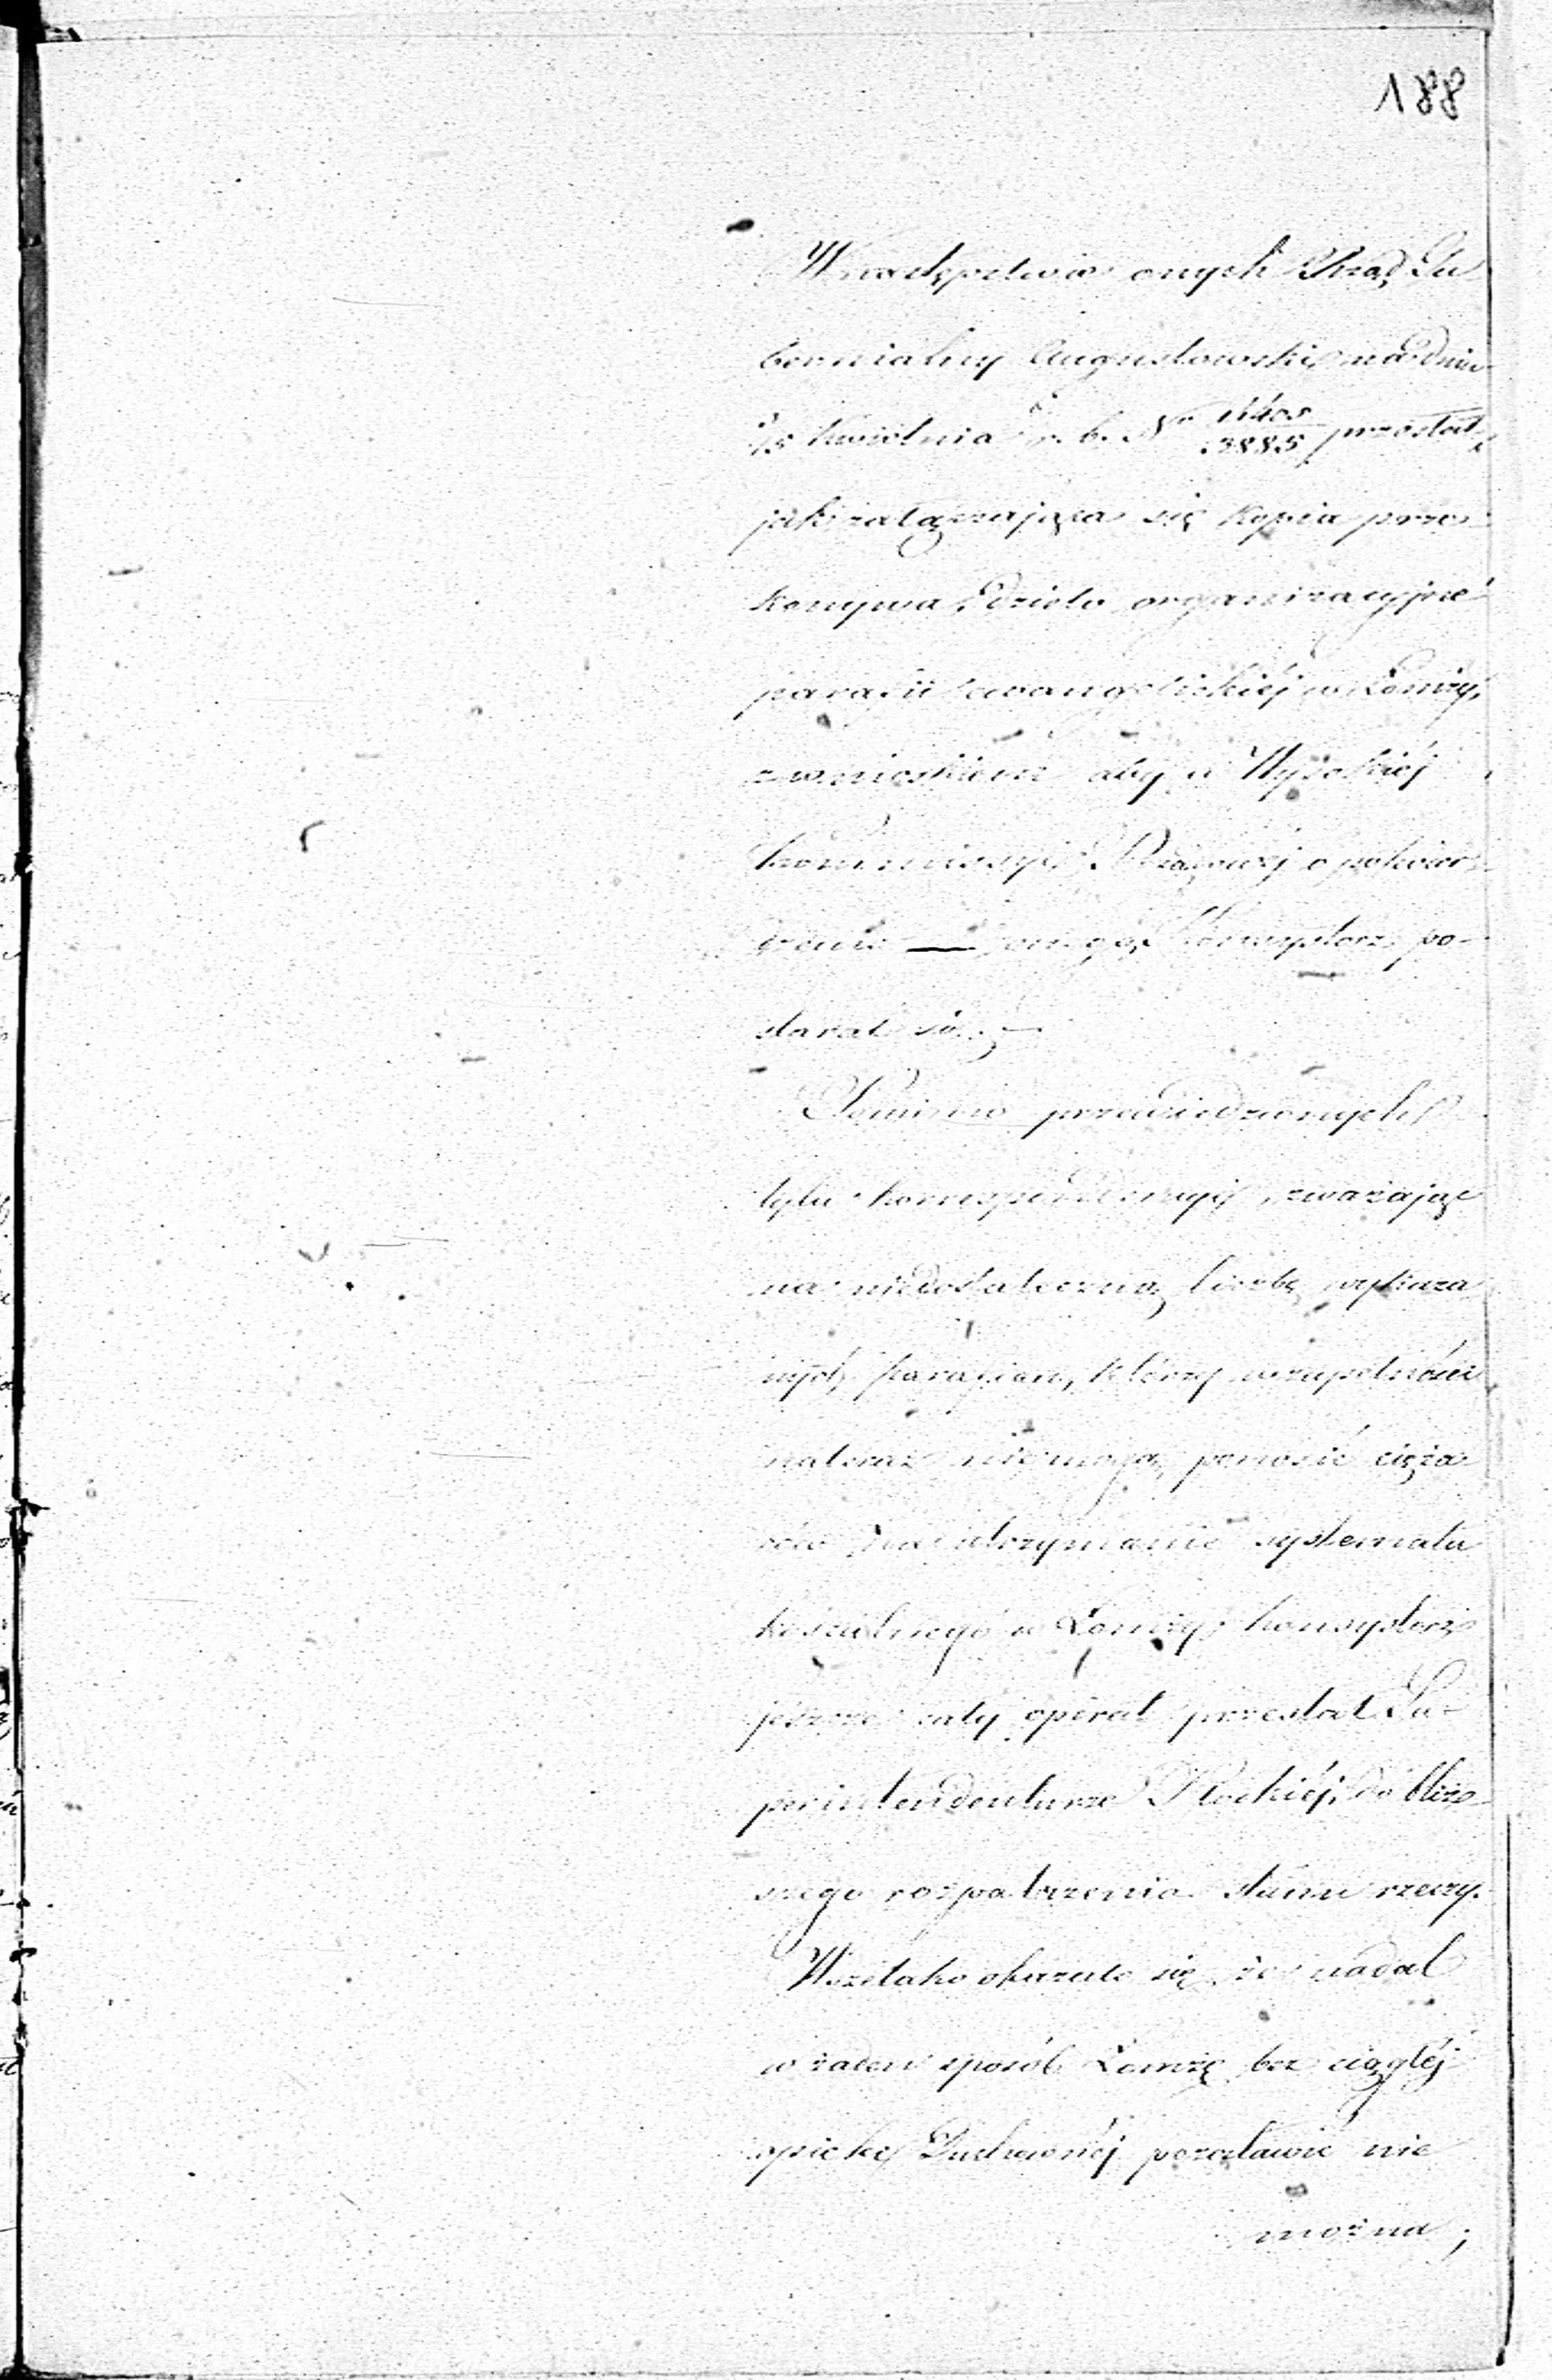 188
W następstwie onych Rząd Gu
bernialny Augustowski, na dniu
3/15 Kwietnia r. b. Nr 11405/3885 przesłał,
jak załączająca się kopia prze-
konywa, dzieło organizacyjne
parafii ewangelickiéj w Łomży,
z wnioskiem aby u Wysokiéj
Kommissyi Rządowéj o potwier-
dzenie — onego, Konsystorz po-
starał się. —
Pomimo przewiedzionych
tylu korrespondencyi, zważając
na niedostateczną liczbę wykaza
nych parafian, którzy w zupełności
nateraz nie mogą ponosić cięża-
rów na utrzymanie systematu
kościelnego w Łomży, Konsystorz
jeszcze cały operat przesłał Su-
perintendenturze Płockiéj, do bliż-
szego rozpatrzenia stanu rzeczy.
Wszelako okazało się, że nadal
w żaden sposób Łomżę bez ciągłéj
opieki Duchownéj pozostawić nie
można;